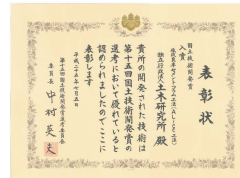 表彰状
国土技術開発賞
入賞
独立行政法人土木研究所 殿
貴所の開発された技術は
第十五回国土技術開発賞の
選考において優れていると
認められましたのでここに
表彰します
平成二十五年七月五日
第十五回国土技術開発賞選考委員会
委員長 中村英夫